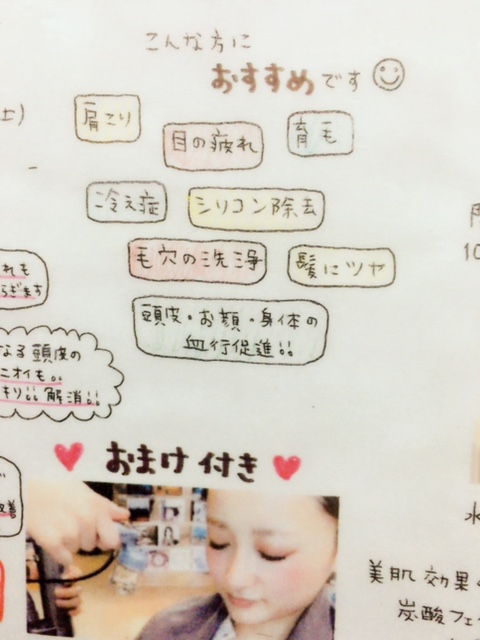 こんな方に
おすすめです
土)
肩こり
目の疲れ
育毛
冷え症
シリコン除去
毛穴の洗浄
髪にツヤ
頭皮・お顔・身体の
血行促進!!
れも
らぎます
なる頭皮の
ニオイも!!
きり!! 解消!!
おまけ付き
改善
10
水
美肌効果
炭酸フェ